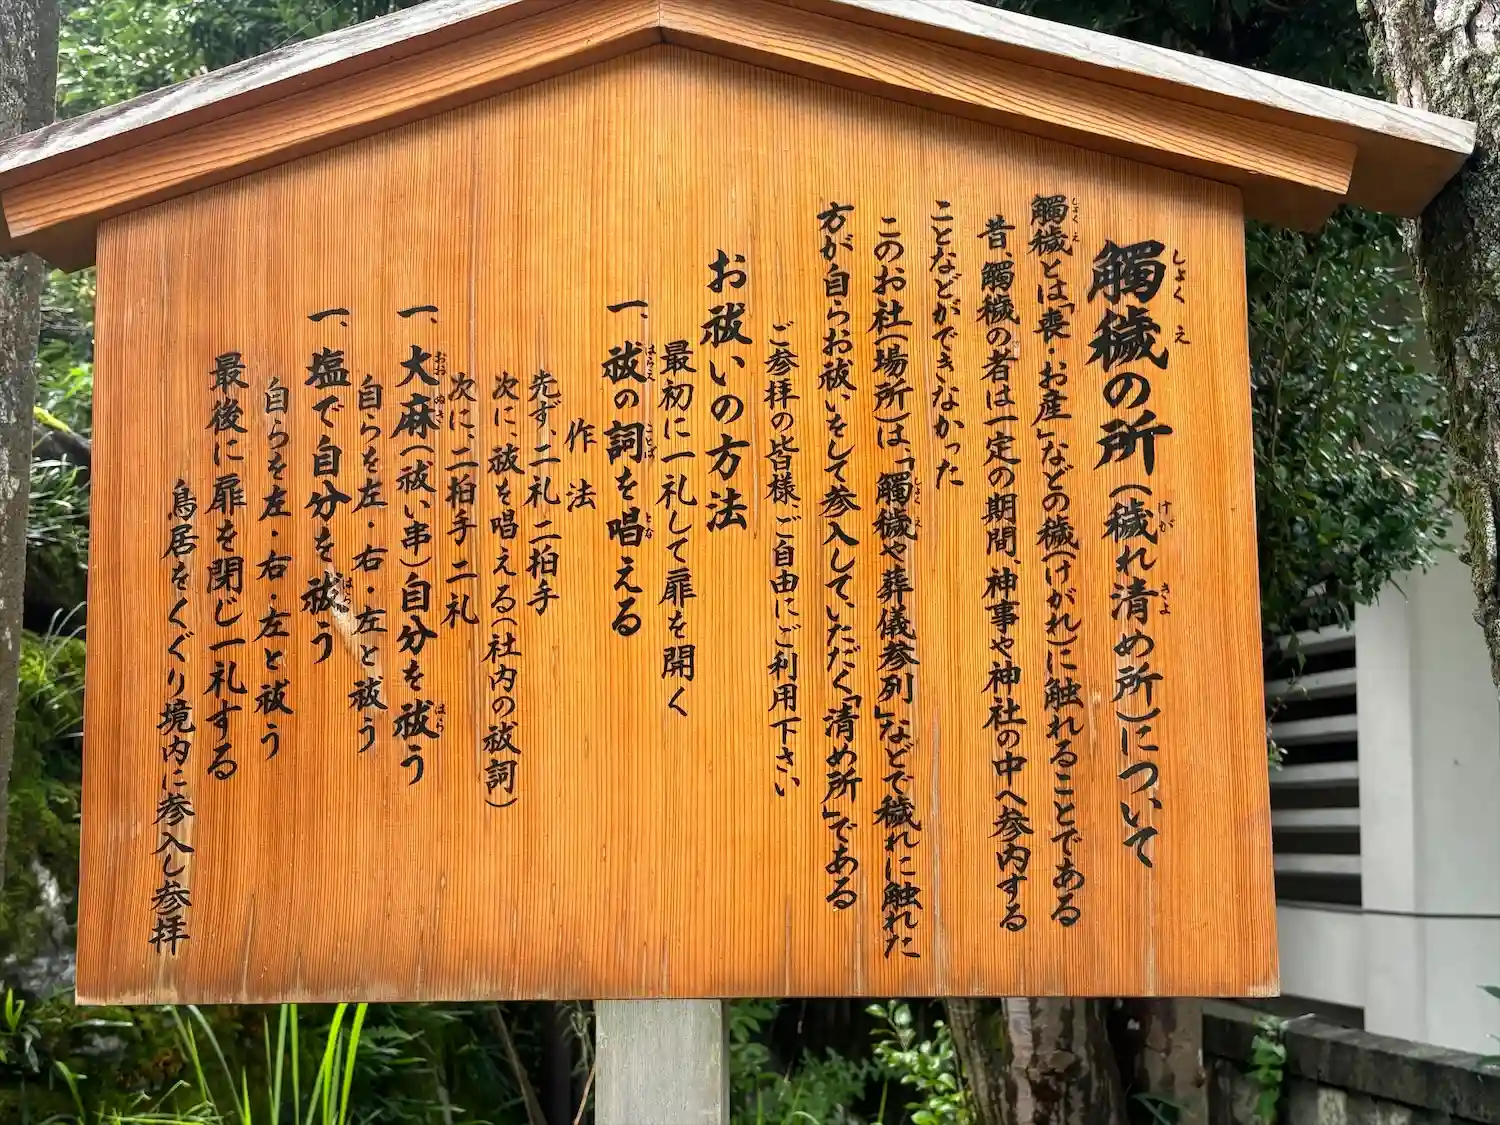 觸穢の所（穢れ清め所）について
觸穢とは「喪・お産」などの穢（けがれ）に触れることである
昔、觸穢の者は一定の期間、神事や神社の中へ参内する
ことなどができなかった
このお社（場所）は、「觸穢や葬儀参列」などで穢れに触れた
方が自らお祓いをして参入していただく「清め所」である
ご参拝の皆様、ご自由にご利用下さい
お祓いの方法
最初に一礼して扉を開く
一、祓の詞を唱える
作法
先ず、二礼二拍手
次に、祓を唱える（社内の祓詞）
次に、二拍手二礼
一、大麻（祓い串）自分を祓う
自らを左・右・左と祓う
一、塩で自分を祓う
自らを左・右・左と祓う
最後に扉を閉じ一礼する
鳥居をくぐり境内に参入し参拝